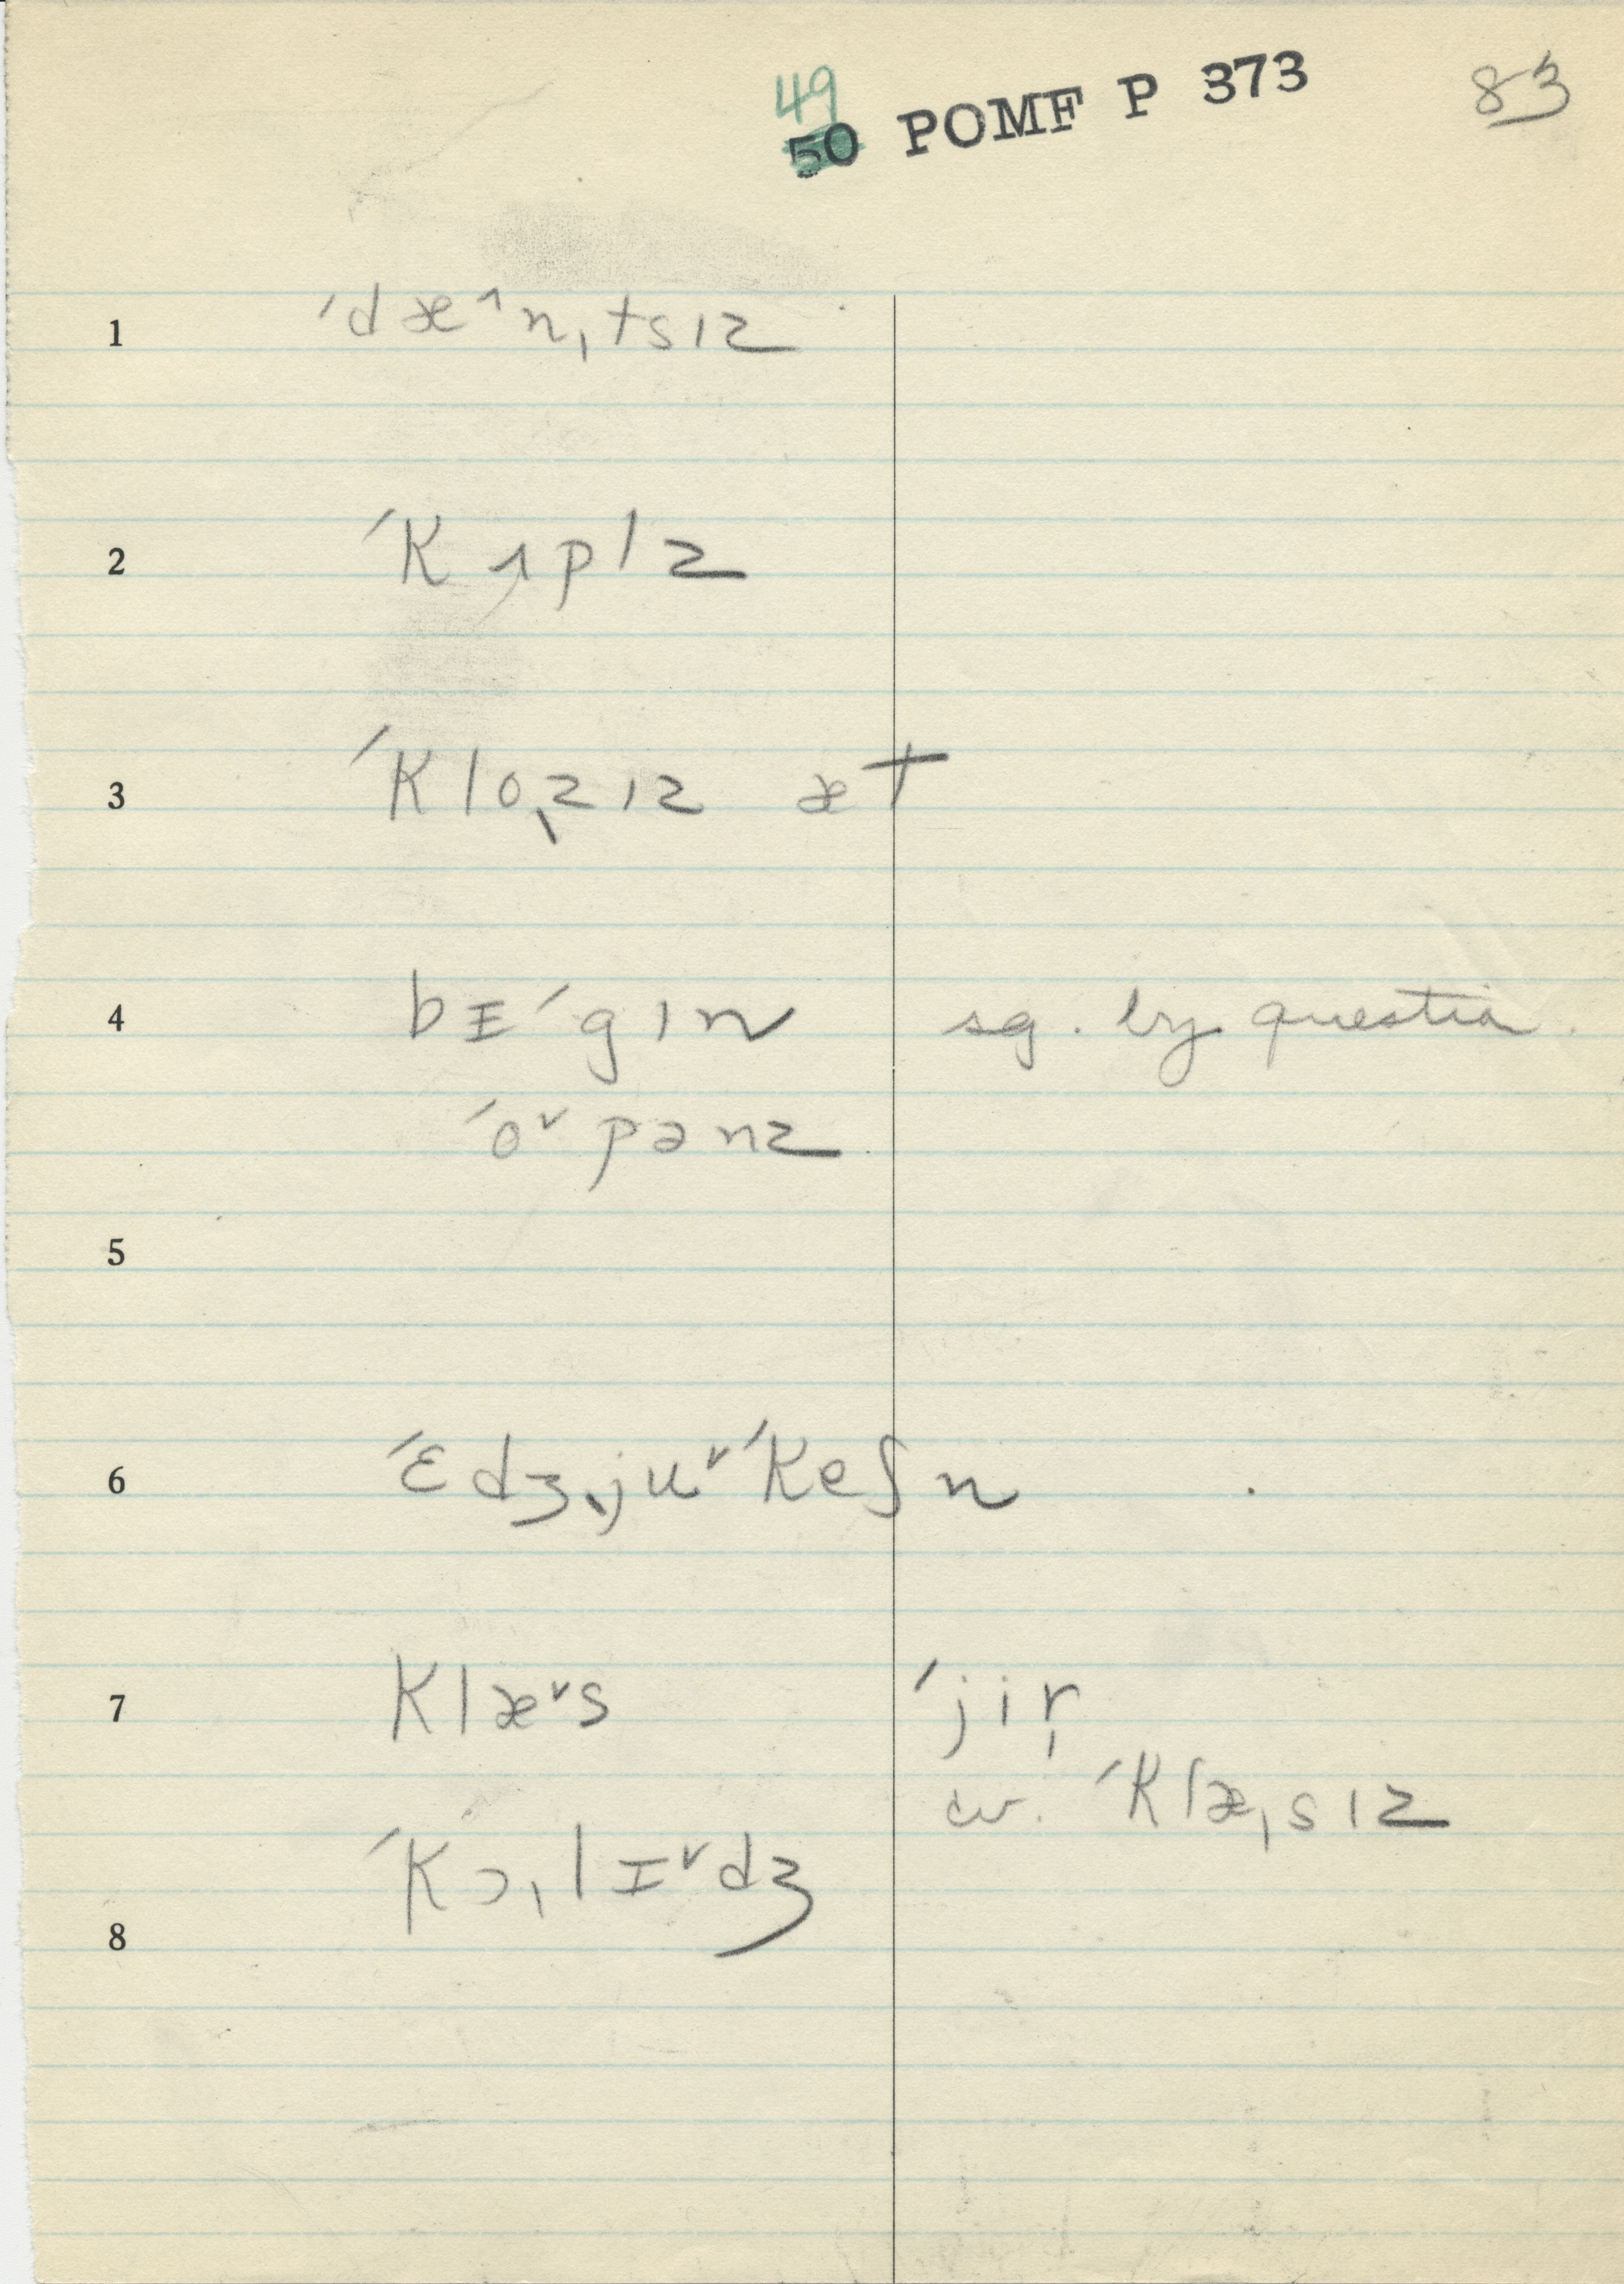 49
50 POMF P 373 83
1 ˈdæ˄nˌtsɪz
2 ˈKʌplz
3 ˈKloˌzɪz æt
4 bɪˈgɪn sg. by question.
ˈo˅pənz
5
6 ˈɛdʒˌju˅ˈKeʃn
7 Klæ˅s ˈjir̩
cv. ˈKlæˌsɪz
ˈKɔˌlɪ˅dʒ
8